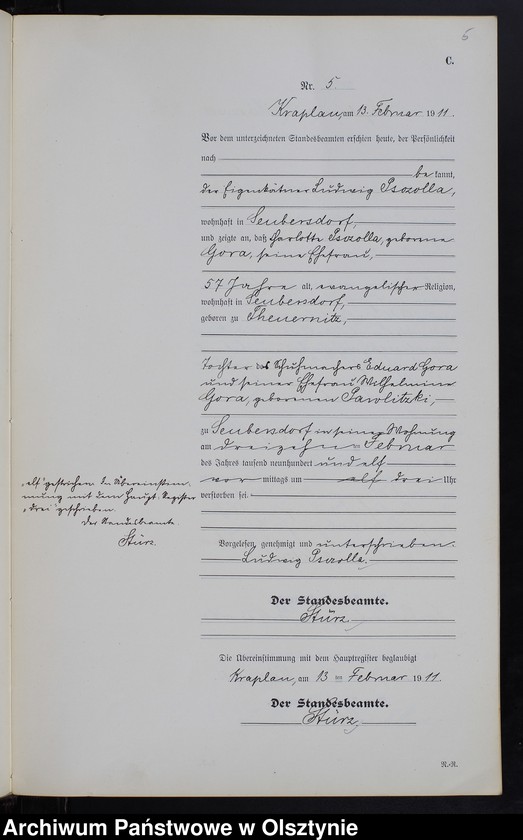 5
C.
Nr. 5.
Kraplau, am 13. Februar 1911.
Vor dem unterzeichneten Standesbeamten erschien heute, der Persönlichkeit
nach
be kannt,
der Eigenkätner Ludwig Pszolla,
wohnhaft in Seubersdorf,
und zeigte an, daß Charlotte Pszolla, geborene
Gora, seine Ehefrau,
57 Jahre alt, evangelischer Religion,
wohnhaft in Seubersdorf,
geboren zu Theuernitz,
Tochter des Schuhmachers Eduard Gora
und seiner Ehefrau Wilhelmine
Gora, geborenen Pawlitzki,
zu Seubersdorf in seiner Wohnung
am dreizehn ten Februar
des Jahres tausend neunhundert und elf
vor mittags um elf drei Uhr
verstorben sei.
„elf" gestrichen. In Übereinstim-
mung mit dem Haupt-Register
„drei" geschrieben.
Der Standesbeamte.
Stürz.
Vorgelesen, genehmigt und unterschrieben.
Ludwig Pszolla.
Der Standesbeamte.
Stürz.
Die Übereinstimmung mit dem Hauptregister beglaubigt
Kraplau, am 13 ten Februar 1911.
Der Standesbeamte.
Stürz.
N.-R.
Archiwum Państwowe w Olsztynie